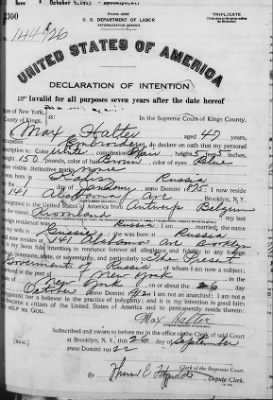 U. S. DEPARTMENT OF LABOR
TRIPLICATE
UNITED STATES OF AMERICA
DECLARATION OF INTENTION
Invalid for all purposes seven years after the date hereof
In the Supreme Court of Kings County.
County of Kings,
Max Halter aged 47 years,
occupation Embroidery, do declare on oath that my personal
description is: Color White, complexion Fair, height 5 feet 3 inches,
weight 150 pounds, color of hair Brown, color of eyes Blue
other visible distinctive marks none
Russia
day of January, anno Domini 1875. I now reside
at 141 Alabama Ave Brooklyn, N. Y.
I emigrated to the United States of America from Antwerp Belgium
on the vessel Kroonland; my last
foreign residence was Russia; I am married; the name
of my wife is Gussie; she was born at Russia
and now resides at 141 Alabama Ave Brooklyn
It is my bona fide intention to renounce forever all allegiance and fidelity to any foreign
prince, potentate, state, or sovereignty, and particularly to The Present
Government of Russia of whom I am now a subject;
I arrived at the port of New York
State of New York, on or about the 26 day
of October, anno Domini 1912; I am not an anarchist; I am not a
polygamist nor a believer in the practice of polygamy; and it is my intention in good faith
to become a citizen of the United States of America and to permanently reside therein:
SO HELP ME GOD.
Max Halter
Subscribed and sworn to before me in the office of the Clerk of said Court
[SEAL] at Brooklyn, N. Y., this 26 day of September
anno Domini 1922
Clerk of the Supreme Court.
By
Deputy Clerk.